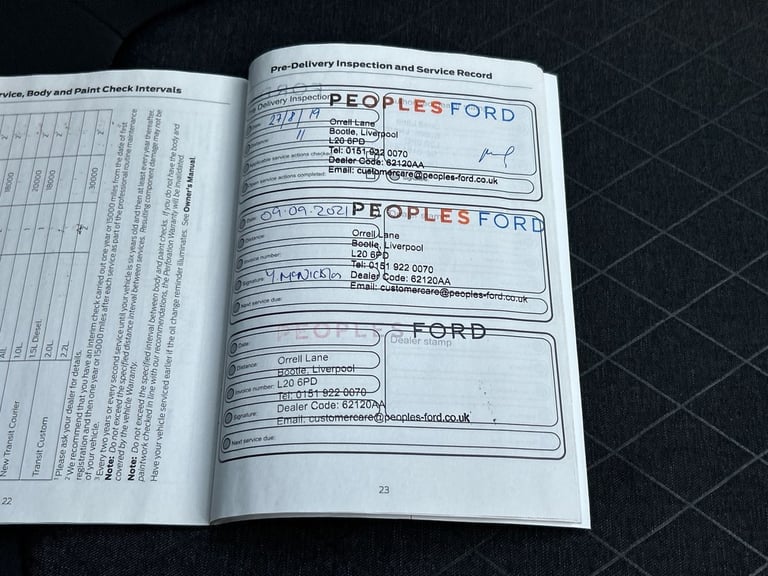 rvice, Body and Paint Check Intervals
New Transit Courier
All
18000
2
1.0L
Transit Custom
1.5L Diesel
20000
2.0L
18000
2.2L
30000
Please ask your dealer for details.
We recommend that you have an interim check carried out one year or 15000 miles from the date of first
registration and then one year or 15000 miles after each service as part of the professional routine maintenance
of your vehicle.
Every two years or every second service until your vehicle is six years old and then at least every year thereafter.
Note: Do not exceed the specified distance interval between services. Resulting component damage may not be
covered by the vehicle Warranty.
Note: Do not exceed the specified interval between body and paint checks. If you do not have the body and
paintwork checked in line with our recommendations, the Perforation Warranty will be invalidated.
Have your vehicle serviced earlier if the oil change reminder illuminates. See Owner's Manual.
22
Pre-Delivery Inspection and Service Record
Delivery Inspection
PEOPLES FORD
Date: 27/8/19
Orrell Lane
Distance: 11
Bootle, Liverpool
L20 6PD
Applicable service actions check
Tel: 0151 922 0070
Dealer Code: 62120AA
Open service actions completed:
Email: customercare@peoples-ford.co.uk
Date: 09.09.2021
PEOPLES FORD
Distance:
Orrell Lane
Bootle, Liverpool
Invoice number:
L20 6PD
Tel: 0151 922 0070
Signature:
Dealer Code: 62120AA
Email: customercare@peoples-ford.co.uk
Next service due:
PEOPLES FORD
Date:
Dealer stamp
Distance:
Orrell Lane
Bootle, Liverpool
Invoice number:
L20 6PD
Tel: 0151 922 0070
Signature:
Dealer Code: 62120AA
Email: customercare@peoples-ford.co.uk
Next service due:
23